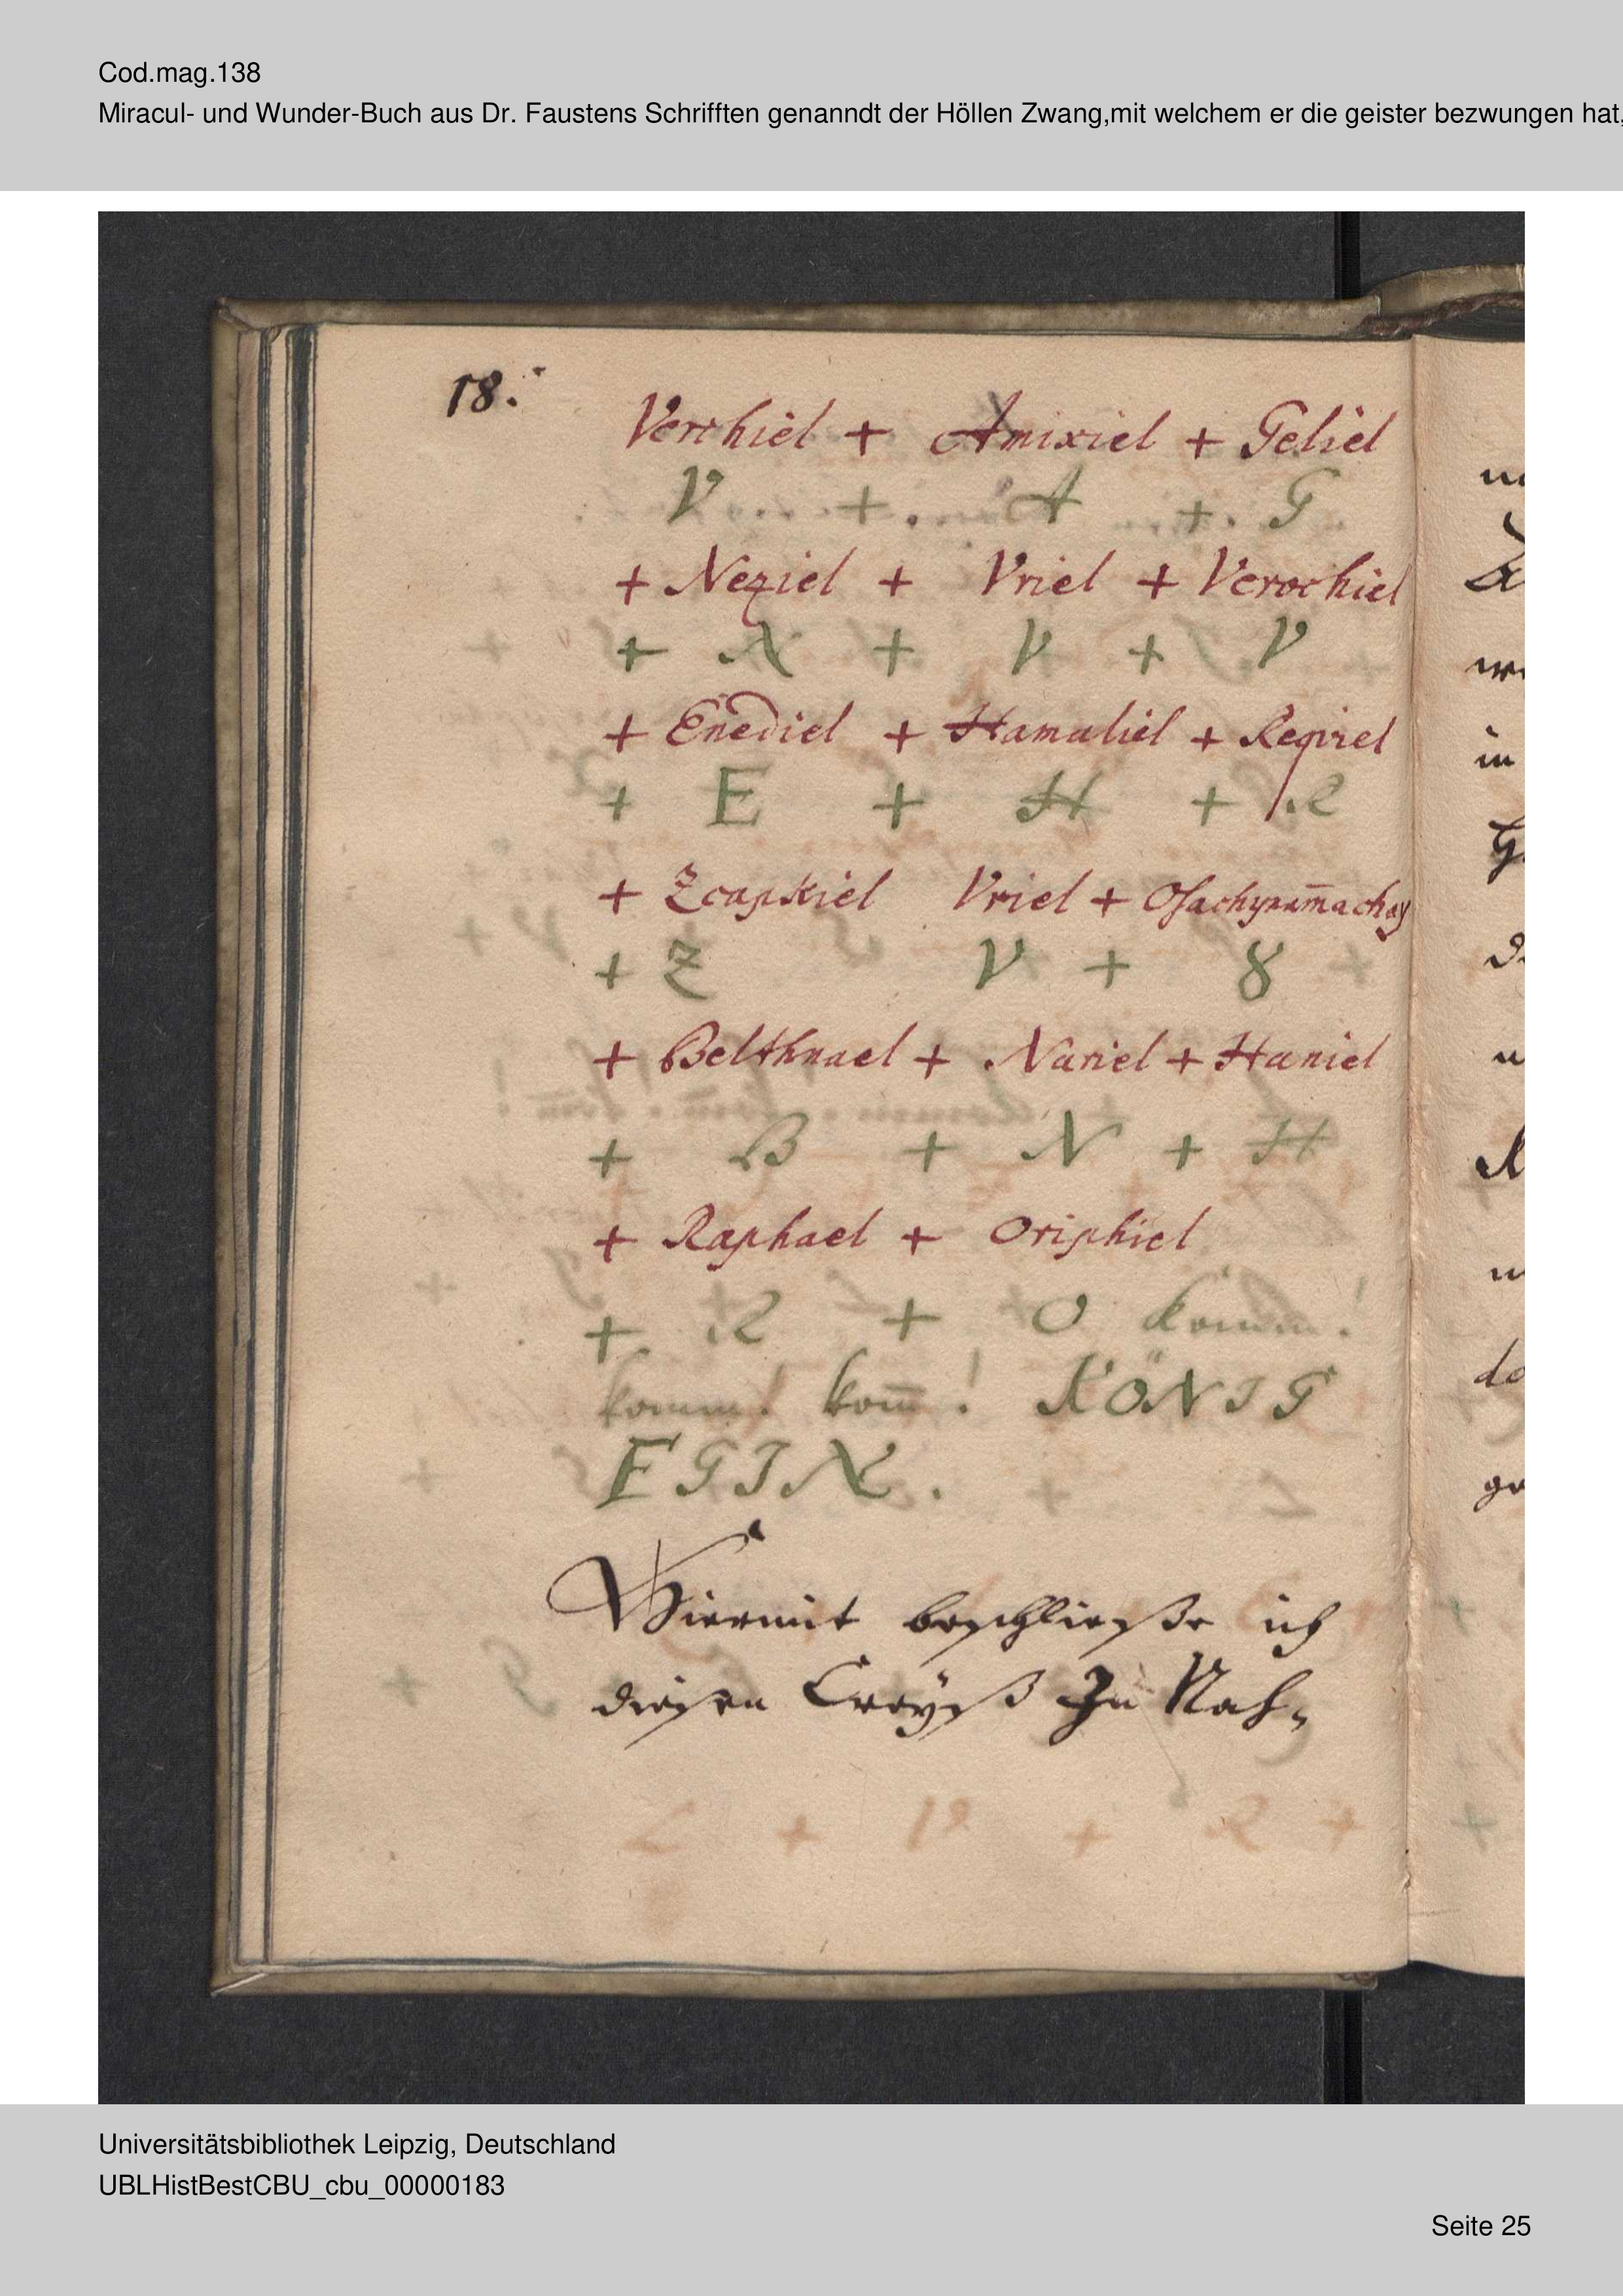 Cod.mag.138
Miracul- und Wunder-Buch aus Dr. Faustens Schrifften genanndt der Höllen Zwang,mit welchem er die geister bezwungen hat,
18.
Verchiel + Amixiel + Geliel
V + A + G
+ Neziel + Vriel + Verochiel
+ N + V + V
+ Enediel + Hamaliel + Reqviel
+ E + H + R
+ Zcaphiel Vriel +
+ Z V + 8
+ Belthnael + Nariel + Haniel
+ B + N + H
+ Raphael + Oriphiel
+ R + O komm!
komm! kom̄! KÖNIG
EGIN.
Hiermit beschließe ich
diesen Creÿß In Nah-
Universitätsbibliothek Leipzig, Deutschland
UBLHistBestCBU_cbu_00000183
Seite 25